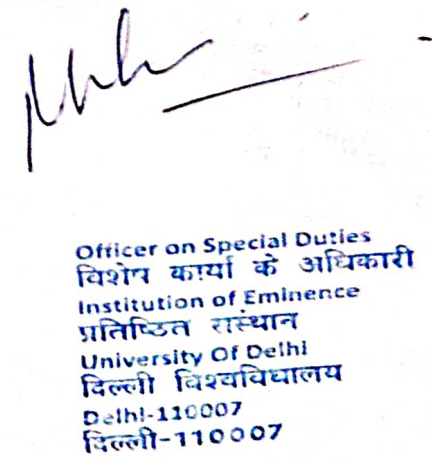 Officer on Special Duties
विशेष कार्यो के अधिकारी
Institution of Eminence
प्रतिष्ठित संस्थान
University Of Delhi
दिल्ली विश्वविद्यालय
Delhi-110007
दिल्ली-110007